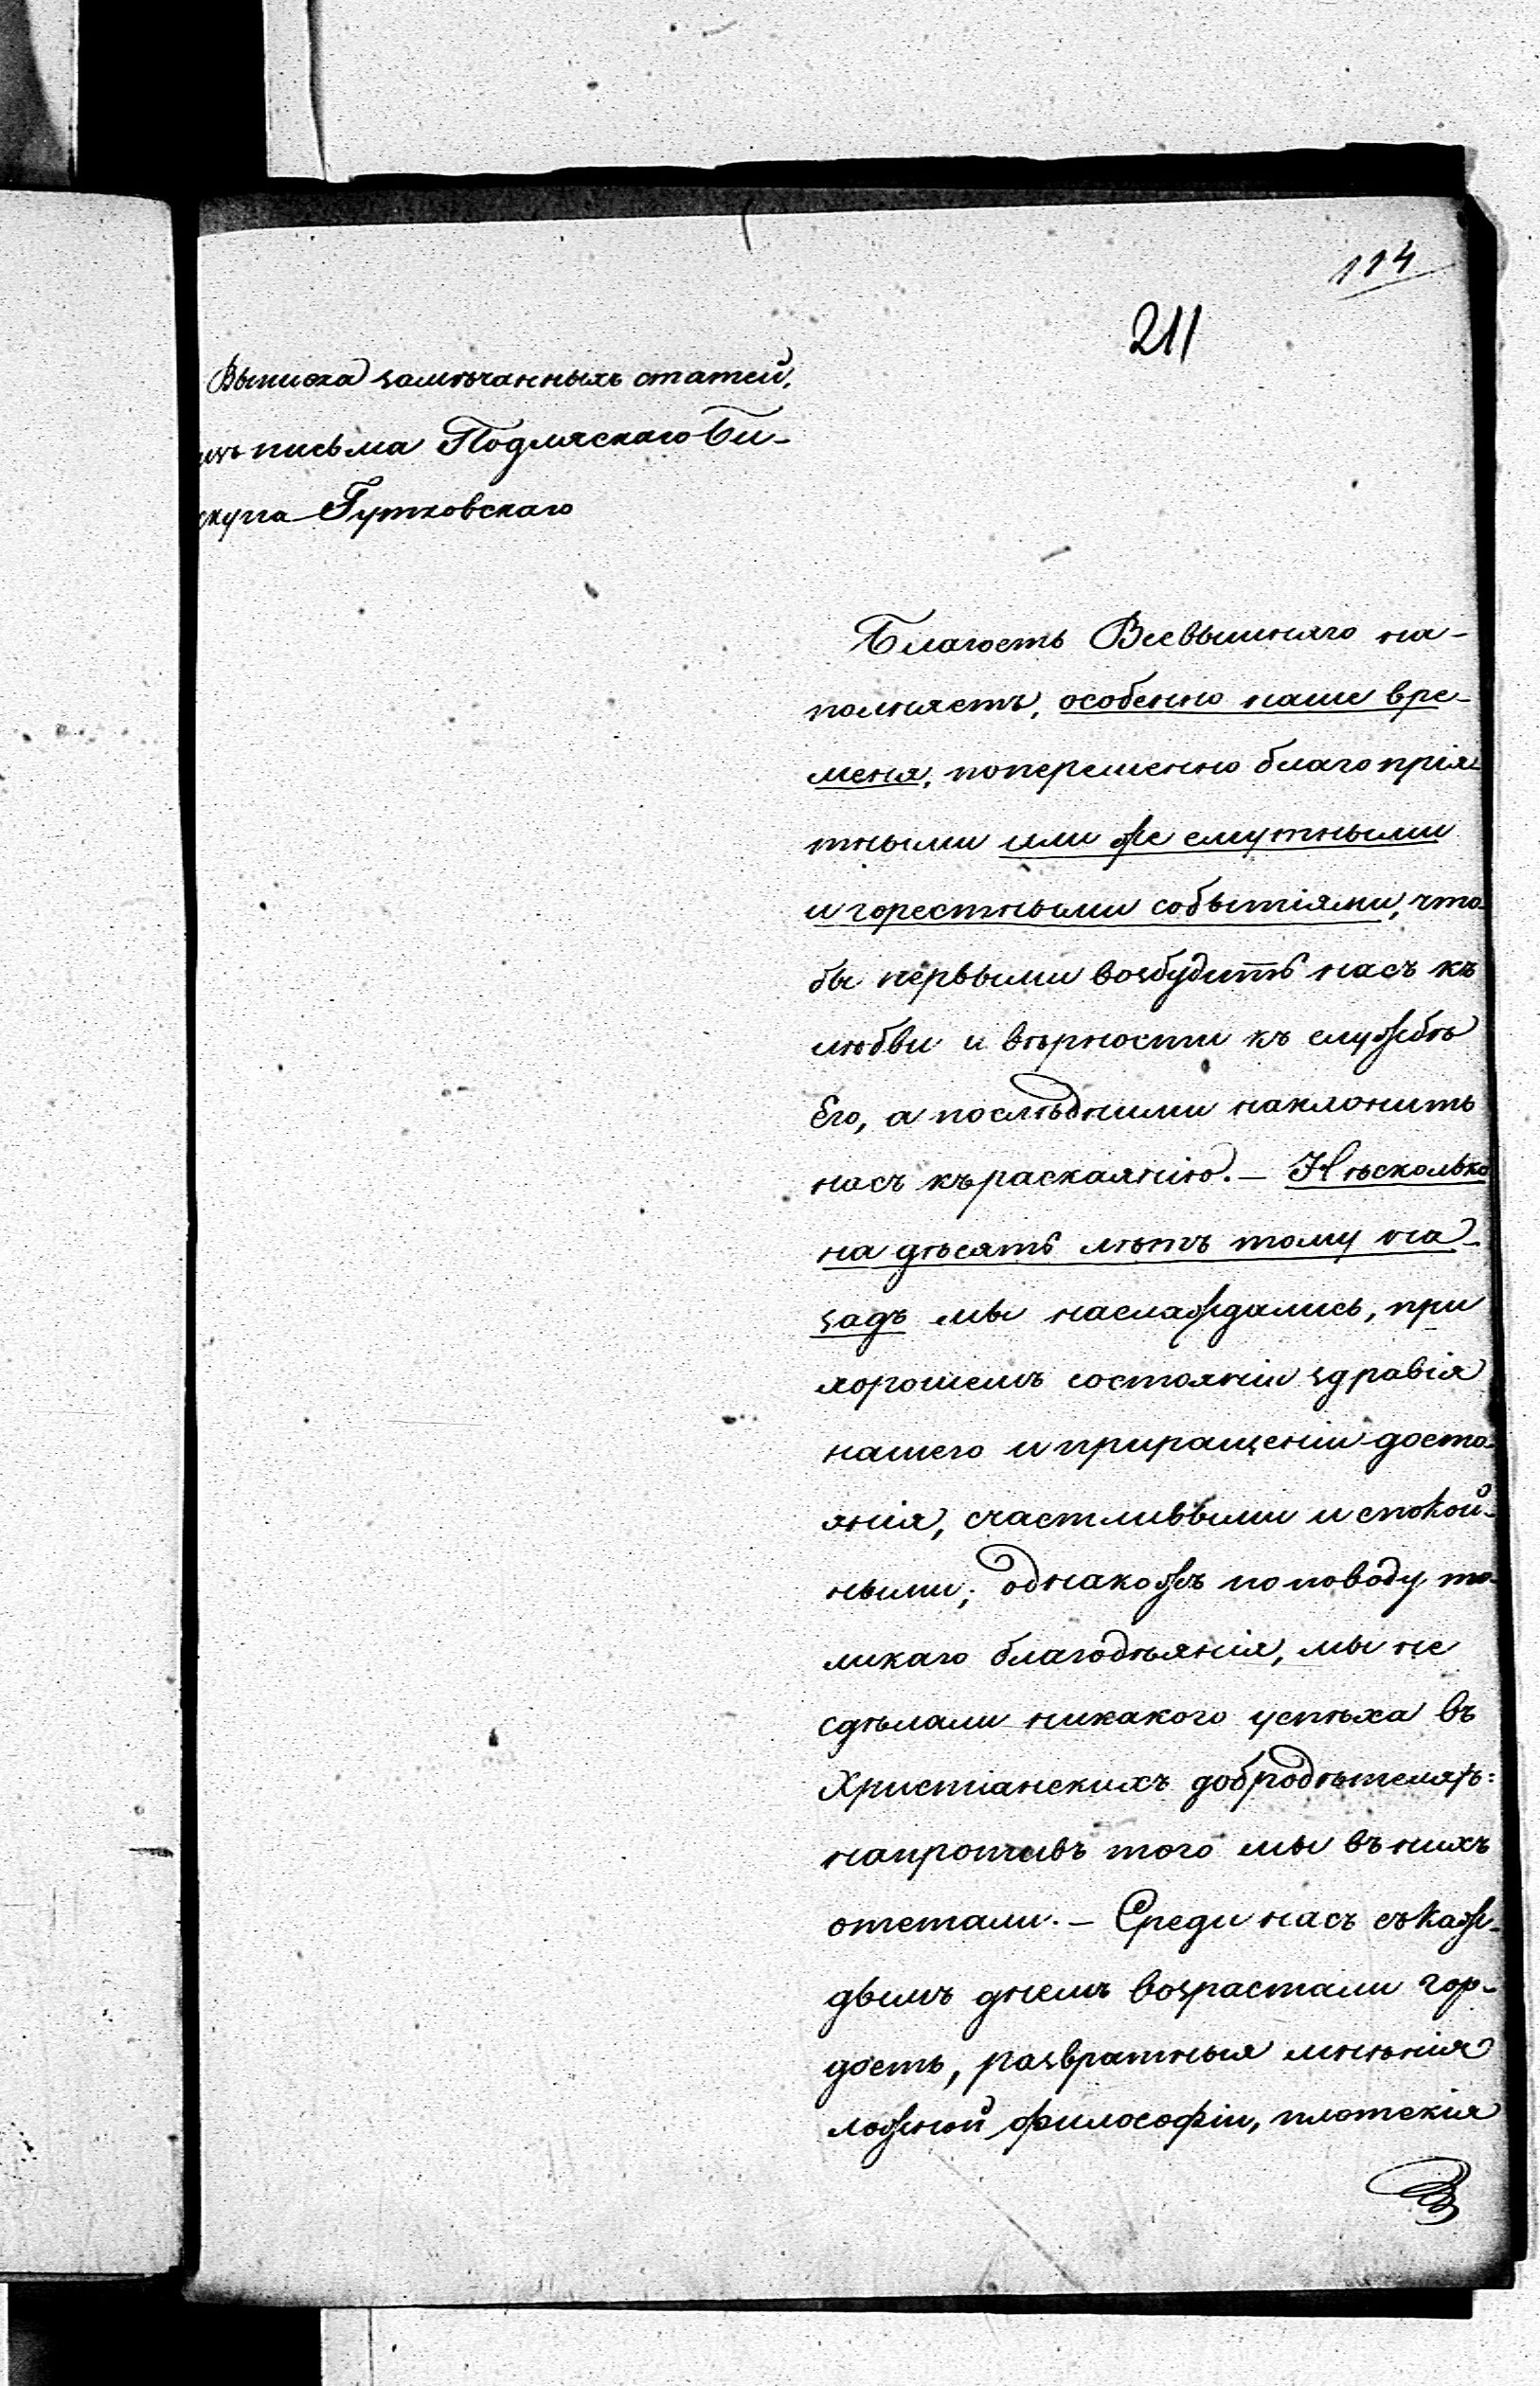 114
211
Выписка замѣчанныхъ статей,
изъ письма Подляскаго Би-
скупа Гутковскаго
Благость Всевышняго на-
полняетъ, особенно наше вре-
меня, поперемѣнно благопрія-
тными или же смутными
и горестными событіями, что-
бы первыми возбудить насъ къ
любви и вѣрности къ службѣ
Его, а послѣдними наклонить
насъ къ раскаянію. — Нѣсколько
на дѣсять лѣтъ тому на-
задъ мы наслаждались, при
хорошемъ состояніи здравія
нашего и приращеніи досто-
янія, счастливыми и спокой-
ными; однакожъ по поводу то-
ликаго благодѣянія, мы не
сдѣлали никакого успѣха въ
Христіанскихъ добродѣтеляхъ:
напротивъ того мы въ нихъ
отстали. — Среди насъ съ каж-
дымъ днемъ возрастали гор-
дость, развратныя мнѣнія
ложной философіи, плотскія